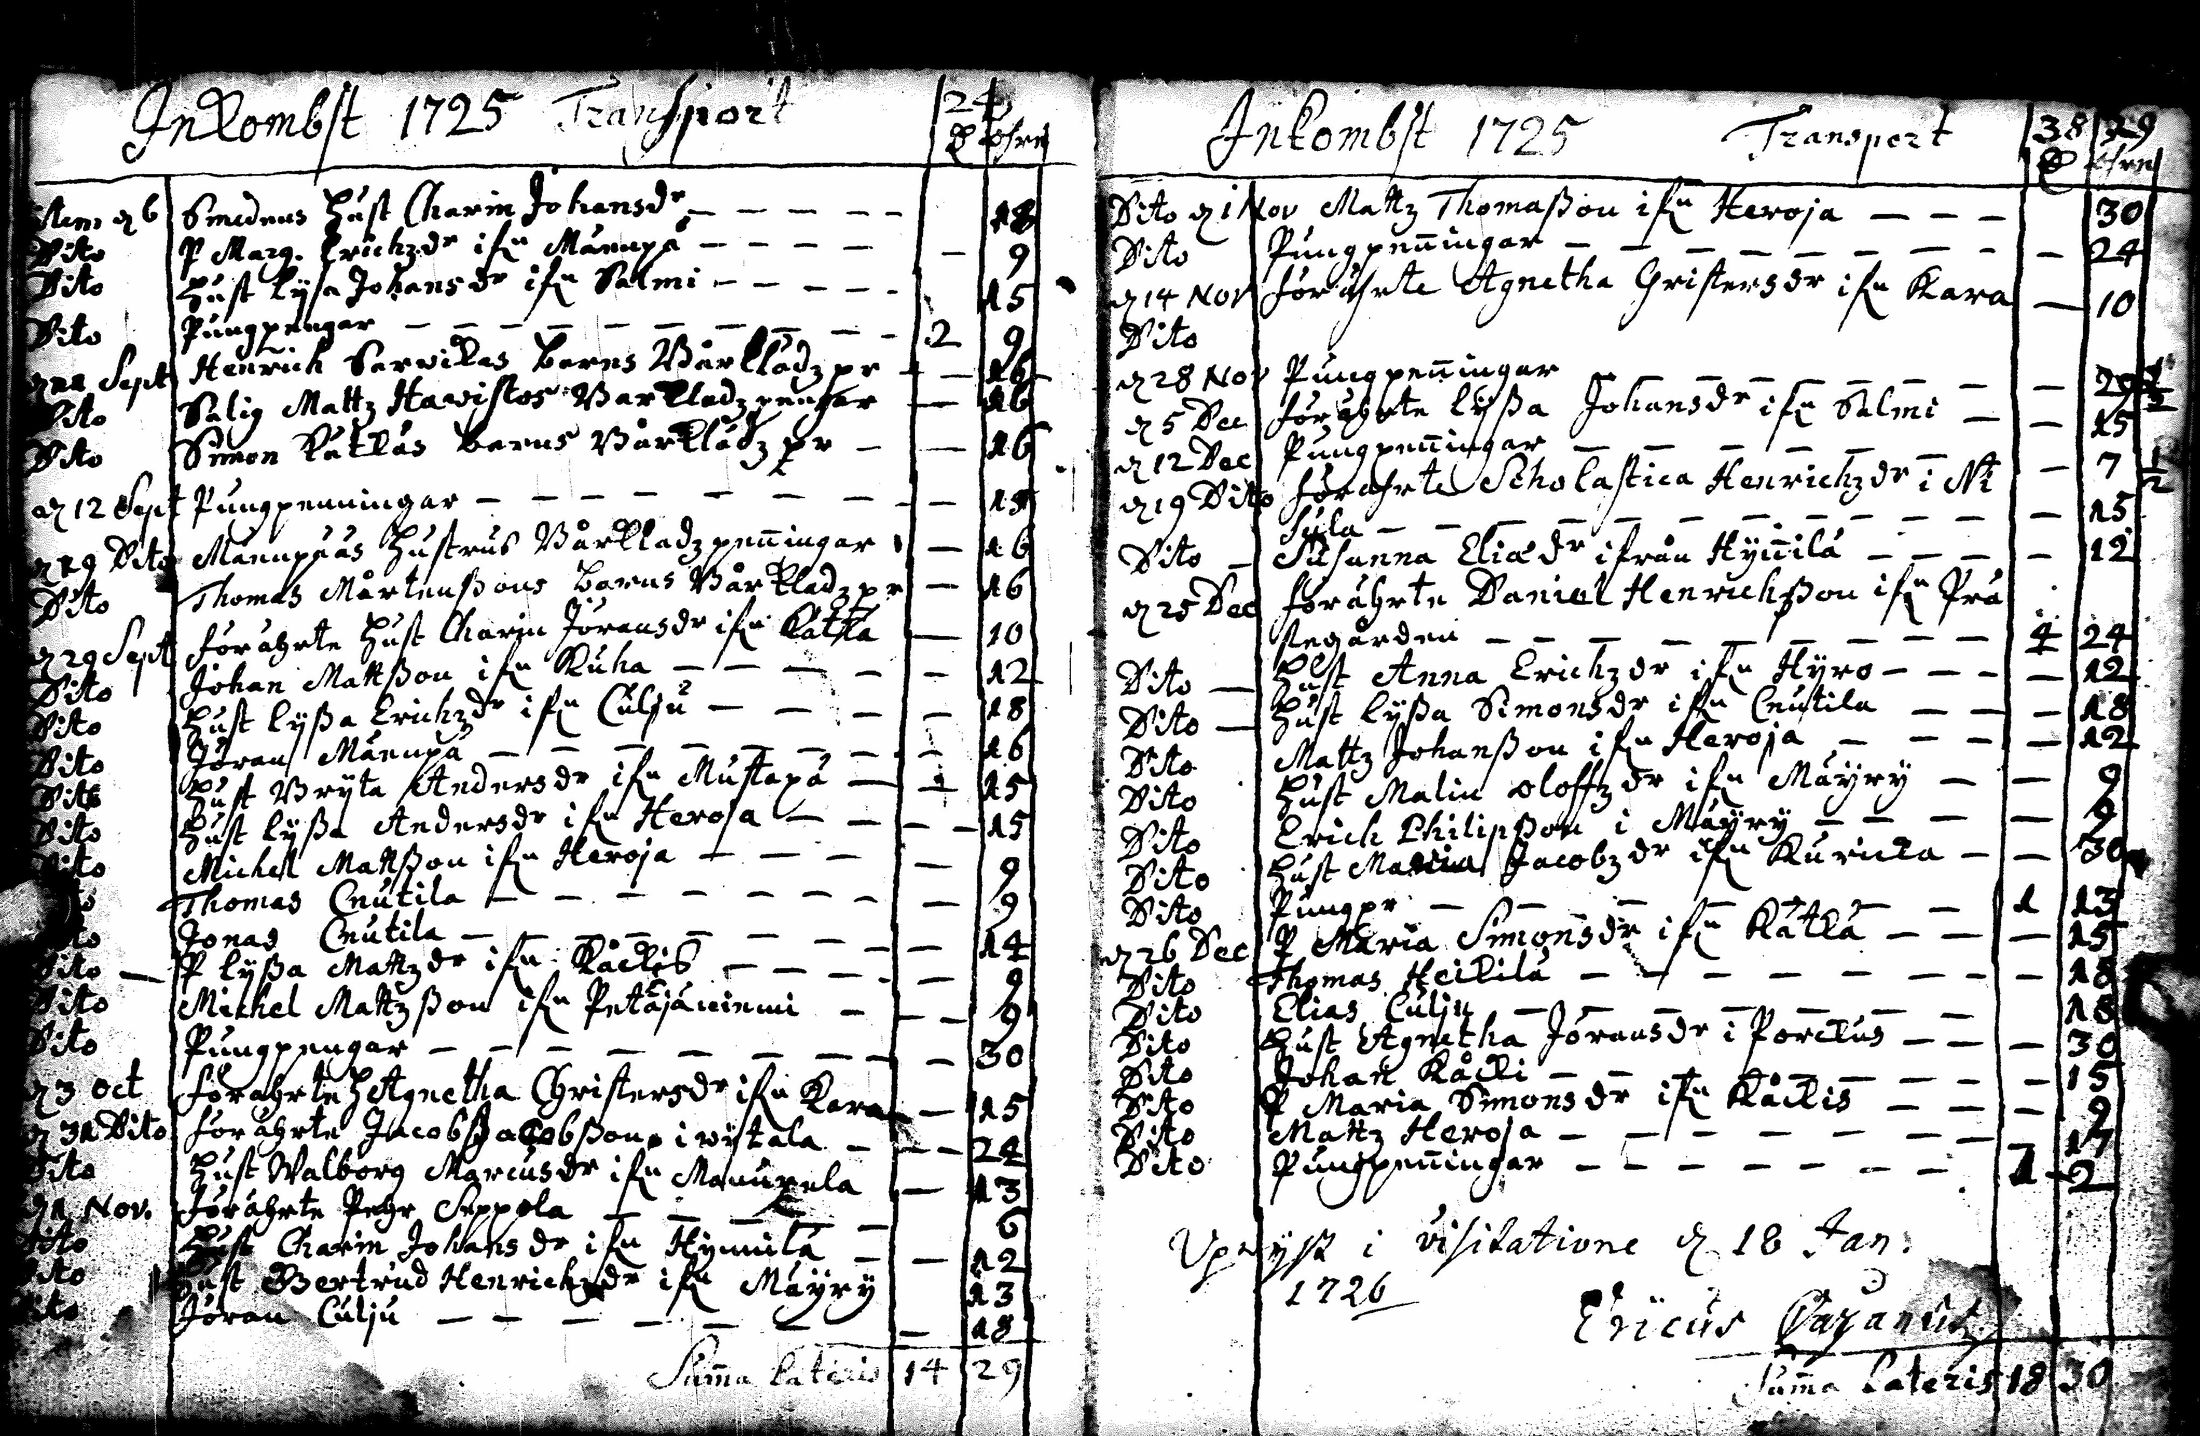 Inkombst 1725 Transport 24
D öhre
Item d 6 Smedens Hust Charin Johansdr 18
Dito P Marg. Erichzdr ifn Mäenpä 9
Dito Hust Lysa Johansdr ifn Salmi 15
Dito Pungpengar 2 9
Sept Henrich Sarvikas barns Bårklädz pr 16
Dito Salig Mattz Havistos Barkladz pengar 16
Dito Simon Katkas barns Bårklädz pr 16
d 12 Sept Pungpenningar 19
d 19 Dito Mäenpääs Hustrus Bårkladz penningar 16
Dito Thomas Mårtenßons barns Bårkladz pr 16
d 29 Sept förährte Hust Charin Jöransdr ifn Katka 10
Dito Johan Mattßon ifn Kuha 12
Dito Hust Lyßa Erichzdr ifn Culju 18
Dito Jöran Mäenpä 16
Dito Hust Bryta Andersdr ifn Mustapä 1 15
Dito Hust Lyßa Andersdr ifn Heroja 15
Dito Michel Mattßon ifn Heroja 9
Thomas Cnutila 9
Jonas Cnutila 14
Dito P Lyßa Mattzdr ifn Kåckis 9
Dito Michel Mattzßon ifn Petäjäniemi 9
Dito Pungpengar 30
d 3 Oct förährte H Agnetha Christersdr ifn Kara 15
d 31 Dito förährte Jacob Jacobßon i Wystala 24
Dito Hust Walborg Marcusdr ifn 13
d 1 Nov. förährte Pehr Seppela 6
Dito Hust Charin Johansdr ifn Hynnilä 12
Dito Hust Bertrud Henrichzdr ifn Mäyry 13
Dito Jöran Culju 18
Summa Lateris 14 29
Inkombst 1725 Transport 38 29
D öhre
Dito d 1 Nov Mattz Thomaßon ifn Heroja 30
Dito Pungpenningar 24
d 14 Nov förährte Agnetha Christersdr ifn Kara 10
Dito
d 28 Nov Pungpenningar 29 1/2
d 5 Dec förährte Lyßa Johansdr ifn Salmi 15
d 12 Dec Pungpenningar 7 1/2
d 19 Dito förährte Scholastica Henrichzdr i Ni
kula 15
Dito Susanna Eliædr ifrån Hynnilä 12
d 25 Dec förährte Daniel Henrichßon ifn Prä
stegården 4 24
Dito Hust Anna Erichzdr ifn Hyro 12
Dito Hust Lyßa Simonsdr ifn Cnutila 18
Dito Mattz Johanßon ifn Heroja 12
Dito Hust Malin Oloffzdr ifn Mäyry 9
Dito Erich Philipßon i Mäyry 9
Dito Hust Maria Jacobzdr ifn Kuricka 30
Dito Pungpr 1 13
d 26 Dec P Maria Simonsdr ifn Katka 15
Dito Thomas Heikilä 18
Dito Elias Culju 18
Dito Hust Agnetha Jöransdr i Porckus 30
Dito Johan Kåcki 15
Dito P Maria Simonsdr ifn Kåckis 9
Dito Mattz Heroja 17
Dito Pungpenningar 1 2
Uplyst i visitatione d 18 Jan:
1726
Ericus Cajanus
Summa Lateris 18 30